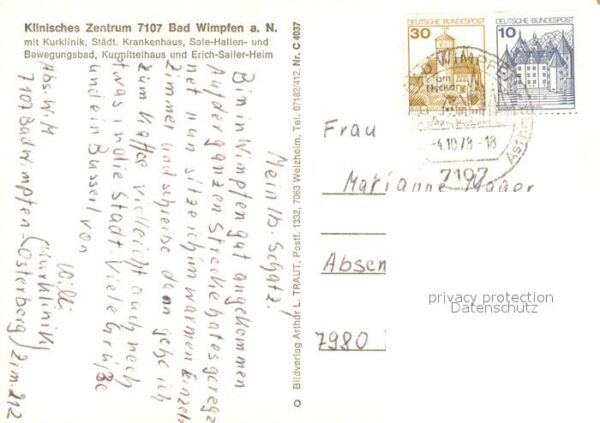 Klinisches Zentrum 7107 Bad Wimpfen a. N.
mit Kurklinik, Städt. Krankenhaus, Sole-Hallen- und
Bewegungsbad, Kurmittelhaus und Erich-Sailer-Heim
Mein lb. Schatz!
Bim in Wimpfen gut angekommen
Auf der ganzen Strecke hat es gereg
net nun sitze ich im warmen Einzel
Zimmer und schreibe dann gehe ich
zum Kaffee vielleicht auch noch
etwas in die Stadt. Viele Grüße
und ein Busserl von
Willi
Abs. W.M
7107 Bad Wimpfen
(Kurklinik
Osterberg) Zim. 212
© Bildverlag Arthur L. TRAUT, Postf. 1332, 7063 Welzheim, Tel. 07182/412, Nr. C 4037
30
DEUTSCHE BUNDESPOST
10
DEUTSCHE BUNDESPOST
BAD WIMPFEN
am
Neckar
-4.10.79-18
7107
Frau
Marianne
Absen
7980
privacy protection
Datenschutz